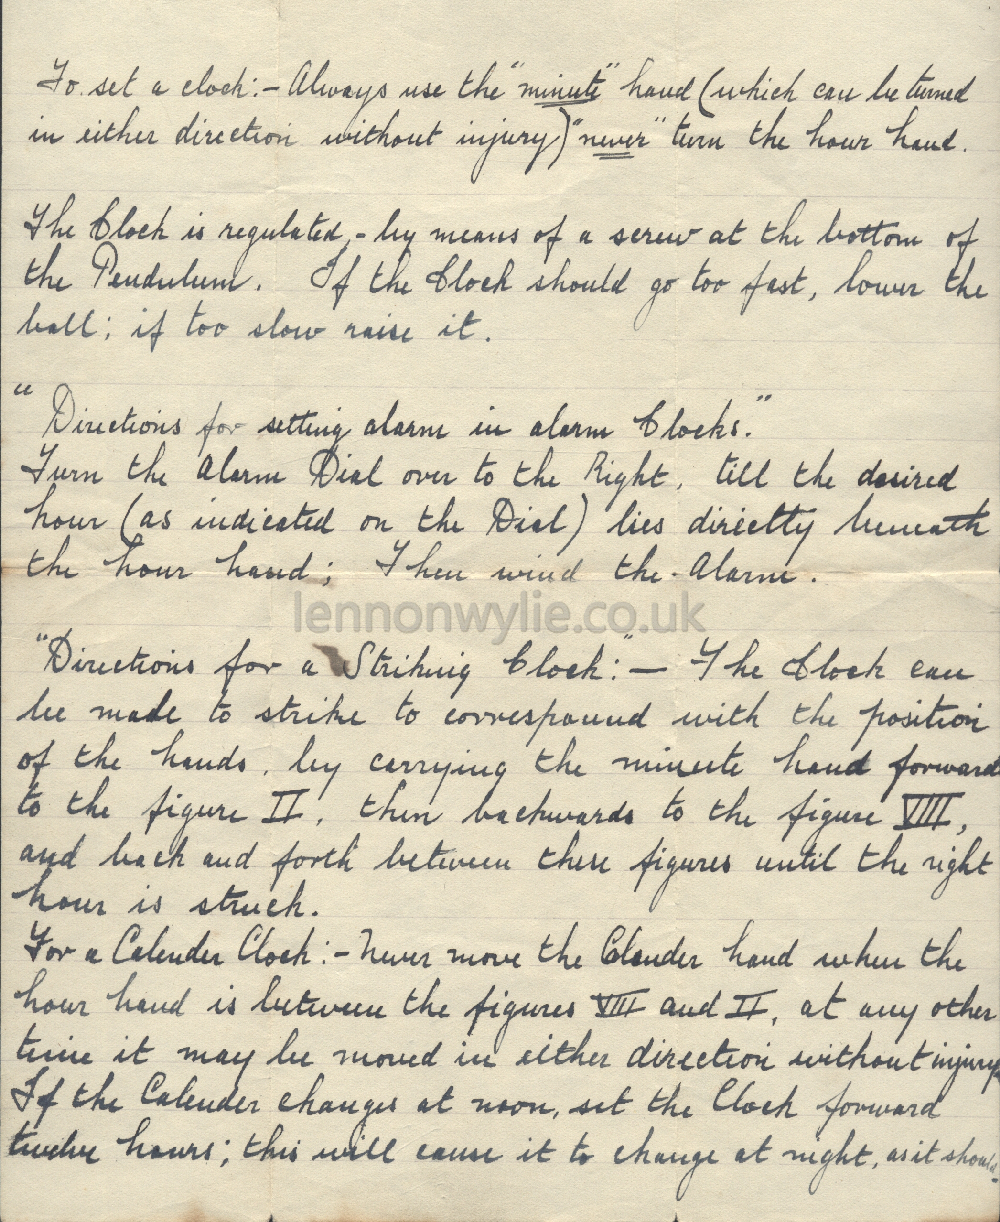 To set a clock:- Always use the "minute" hand (which can be turned
in either direction without injury) "never" turn the hour hand.
The Clock is regulated,- by means of a screw at the bottom of
the Pendulum. If the Clock should go too fast, lower the
ball; if too slow raise it.
"Directions for setting alarm in alarm Clocks."
Turn the Alarm Dial over to the Right, till the desired
hour (as indicated on the Dial) lies directly beneath
the hour hand; Then wind the Alarm.
lennonwylie.co.uk
"Directions for a Striking Clock:"- The Clock can
be made to strike to correspound with the position
of the hands, by carrying the minute hand forward
to the figure II, then backwards to the figure VIII,
and back and forth between these figures until the right
hour is struck.
For a Calender Clock:- Never move the Clander hand when the
hour hand is between the figures VIII and II, at any other
time it may be moved in either direction without injury.
If the Calender changes at noon, set the Clock forward
twelve hours; this will cause it to change at night, as it should.